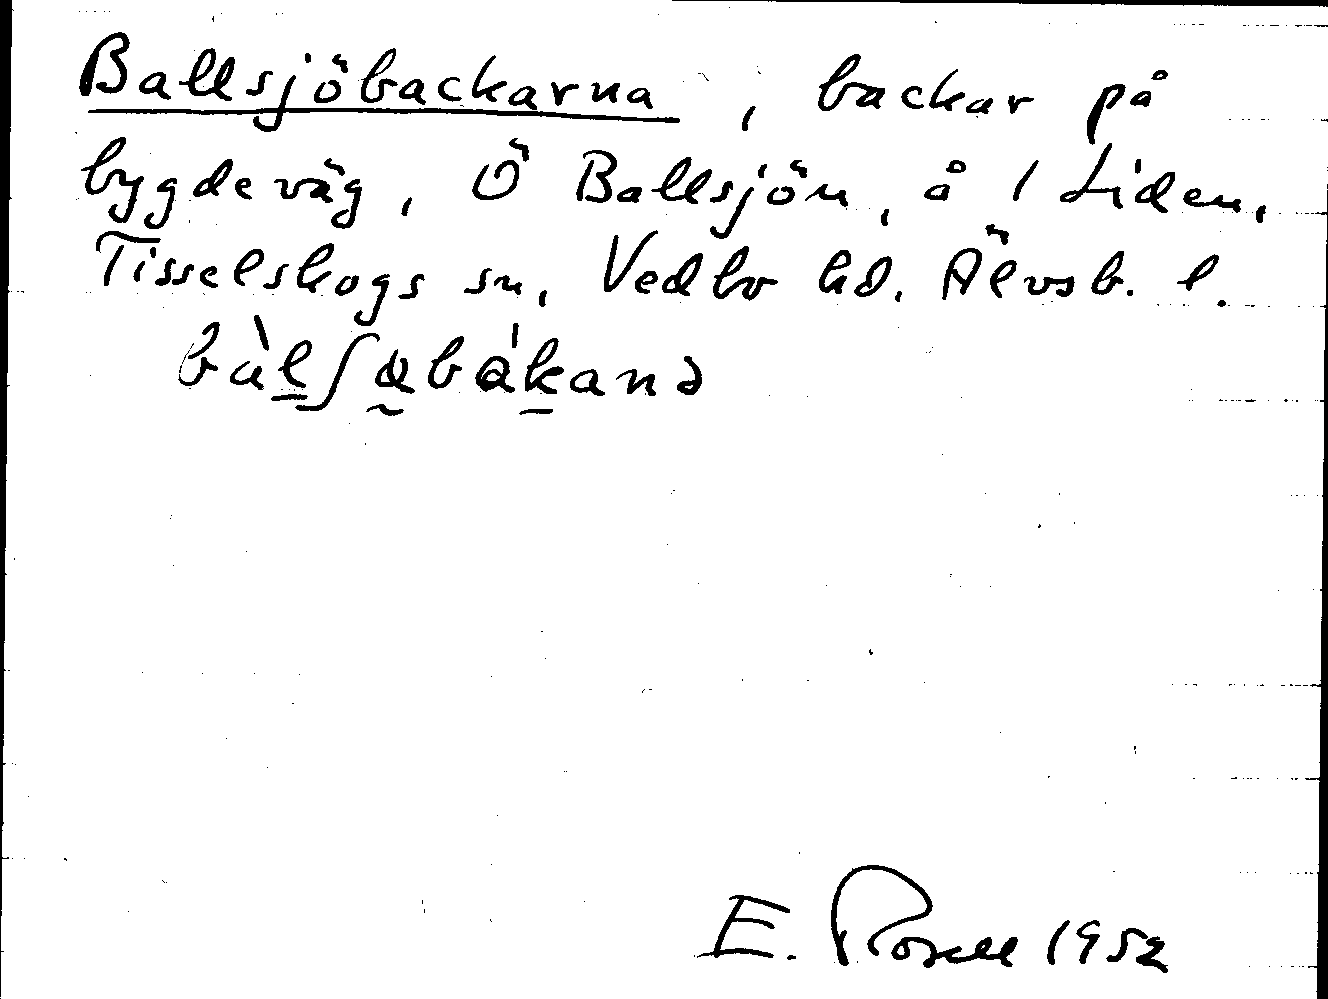 Ballsjöbackarna, backar på
bygdeväg, Ö Ballsjön, å 1 Liden,
Tisselskogs sn, Vedbo hd. Älvsb. l.
bàl̲ʃα̰bák̲anə
E. Rosell 1952